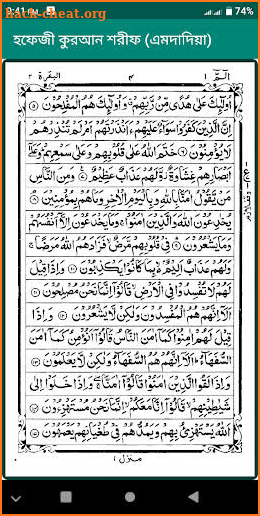 hack-cheat.org
9:41 PM 74%
হফেজী কুরআন শরীফ (এমদাদিয়া)
البقرة ٢ ٤ الٓمّٓ ١
اُولٰٓئِكَ عَلٰى هُدًى مِّنْ رَّبِّهِمْ ۗ وَاُولٰٓئِكَ هُمُ الْمُفْلِحُوْنَ ۝٥
اِنَّ الَّذِيْنَ كَفَرُوْا سَوَآءٌ عَلَيْهِمْ ءَاَنْذَرْتَهُمْ اَمْ لَمْ تُنْذِرْهُمْ
لَا يُؤْمِنُوْنَ ۝٦ خَتَمَ اللّٰهُ عَلٰى قُلُوْبِهِمْ وَعَلٰى سَمْعِهِمْ ۗ وَعَلٰٓى
اَبْصَارِهِمْ غِشَاوَةٌ ۖ وَّلَهُمْ عَذَابٌ عَظِيْمٌ ۝٧ وَمِنَ النَّاسِ
مَنْ يَّقُوْلُ اٰمَنَّا بِاللّٰهِ وَبِالْيَوْمِ الْاٰخِرِ وَمَا هُمْ بِمُؤْمِنِيْنَ ۝٨
يُخٰدِعُوْنَ اللّٰهَ وَالَّذِيْنَ اٰمَنُوْا ۚ وَمَا يَخْدَعُوْنَ اِلَّآ اَنْفُسَهُمْ
وَمَا يَشْعُرُوْنَ ۝٩ فِيْ قُلُوْبِهِمْ مَّرَضٌ ۙ فَزَادَهُمُ اللّٰهُ مَرَضًا ۚ
وَلَهُمْ عَذَابٌ اَلِيْمٌ ۢ بِمَا كَانُوْا يَكْذِبُوْنَ ۝١٠ وَاِذَا قِيْلَ
لَهُمْ لَا تُفْسِدُوْا فِى الْاَرْضِ ۙ قَالُوْٓا اِنَّمَا نَحْنُ مُصْلِحُوْنَ ۝١١
اَلَآ اِنَّهُمْ هُمُ الْمُفْسِدُوْنَ وَلٰكِنْ لَّا يَشْعُرُوْنَ ۝١٢ وَاِذَا
قِيْلَ لَهُمْ اٰمِنُوْا كَمَآ اٰمَنَ النَّاسُ قَالُوْٓا اَنُؤْمِنُ كَمَآ اٰمَنَ
السُّفَهَآءُ ۗ اَلَآ اِنَّهُمْ هُمُ السُّفَهَآءُ وَلٰكِنْ لَّا يَعْلَمُوْنَ ۝١٣
وَاِذَا لَقُوا الَّذِيْنَ اٰمَنُوْا قَالُوْٓا اٰمَنَّا ۖ وَاِذَا خَلَوْا اِلٰى
شَيٰطِيْنِهِمْ ۙ قَالُوْٓا اِنَّا مَعَكُمْ ۙ اِنَّمَا نَحْنُ مُسْتَهْزِءُوْنَ ۝١٤
اَللّٰهُ يَسْتَهْزِئُ بِهِمْ وَيَمُدُّهُمْ فِيْ طُغْيَانِهِمْ يَعْمَهُوْنَ ۝١٥
منزل ١
hack-cheat.org